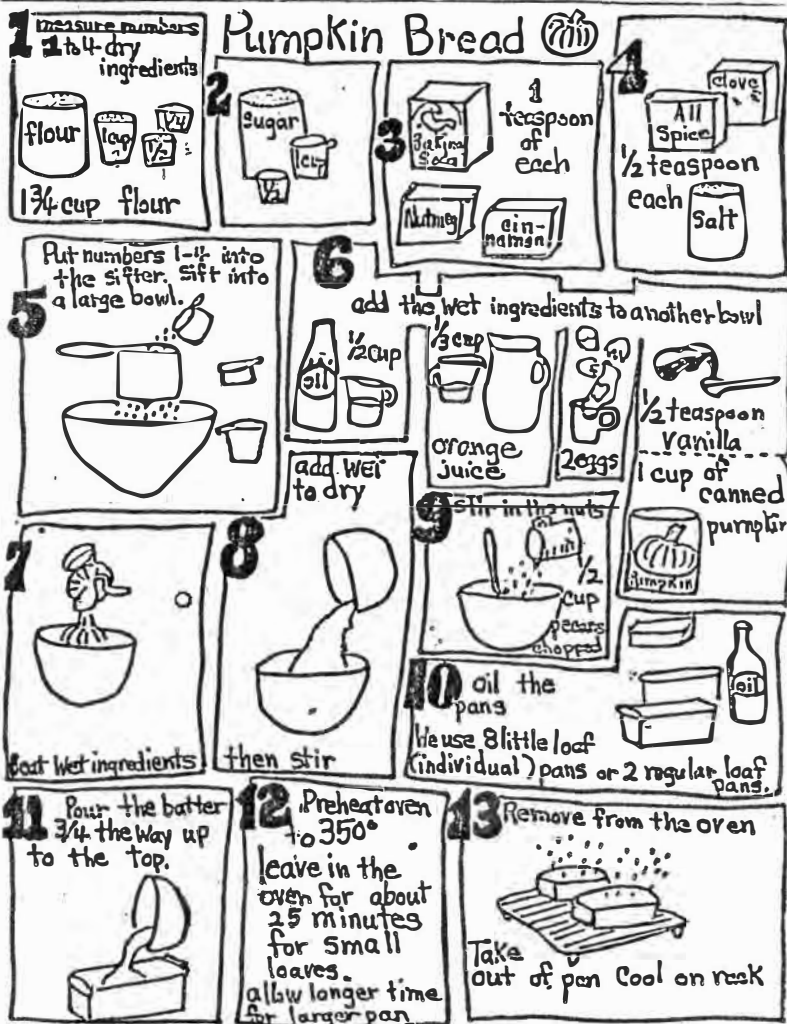 Pumpkin Bread
1 measure numbers
1 to 4 dry
ingredients
flour
1cup
1/4
1/2
1 3/4 cup flour
2
Sugar
1cup
1/2
3
1
teaspoon
of
each
Baking
Soda
Nutmeg
cin-
namon
4
clove
All
Spice
1/2 teaspoon
each
Salt
5
Put numbers 1-4 into
the sifter. Sift into
a large bowl.
6
add the wet ingredients to another bowl
oil
1/2 cup
1/3 cup
orange
juice
2 eggs
1/2 teaspoon
vanilla
1 cup of
canned
pumpkin
Pumpkin
7
Beat wet ingredients
8
add wet
to dry
then stir
9
stir in the nuts
1/2
cup
pecans
chopped
10 oil the
pans
oil
We use 8 little loaf
(individual) pans or 2 regular loaf
pans.
11 Pour the batter
3/4 the way up
to the top.
12 Preheat oven
to 350°
leave in the
oven for about
25 minutes
for small
loaves.
allow longer time
for larger pan
13 Remove from the oven
Take
out of pan Cool on rack